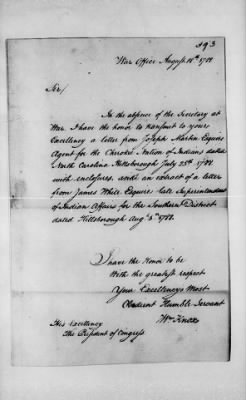 393
War Office August 18th 1788
Sir/
In the absence of the Secretary at
War. I have the honor to transmit to your
Excellency a letter from Joseph Martin Esquire
Agent for the Cherokee Nation of Indians dated
North Carolina Hillsborough July 25th 1788.
with enclosures, and an extract of a letter
from James White Esquire late Superintendent
of Indian Affairs for the Southern District
dated Hillsborough Augt 3th 1788.
I have the honor to be
With the greatest respect
Your Excellencys Most
Obedient Humble Servant
Wm Knox
His Excellency
The President of Congress